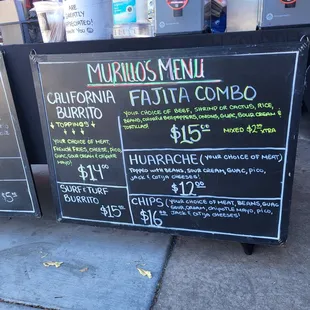 MURILLO'S MENU
CALIFORNIA
BURRITO
↓ TOPPINGS ↓
YOUR CHOICE OF MEAT,
FRENCH FRIES, CHEESE, PICO,
GUAC, SOUR CREAM & CHIPOTLE
MAYO!
$14.00
SURF & TURF
BURRITO $15
FAJITA COMBO
YOUR CHOICE OF BEEF, SHRIMP OR CACTUS, RICE,
BEANS, ONIONS, GUAC, SOUR CREAM &
TORTILLAS!
$15.00 MIXED $2 EXTRA
HUARACHE (YOUR CHOICE OF MEAT)
TOPPED WITH BEANS, SOUR CREAM, GUAC, PICO,
JACK & COTIJA CHEESES!
$12.00
CHIPS (YOUR CHOICE OF MEAT, BEANS, GUAC
SOUR CREAM, CHIPOTLE MAYO, PICO,
$16.00 JACK & COTIJA CHEESES!
$15